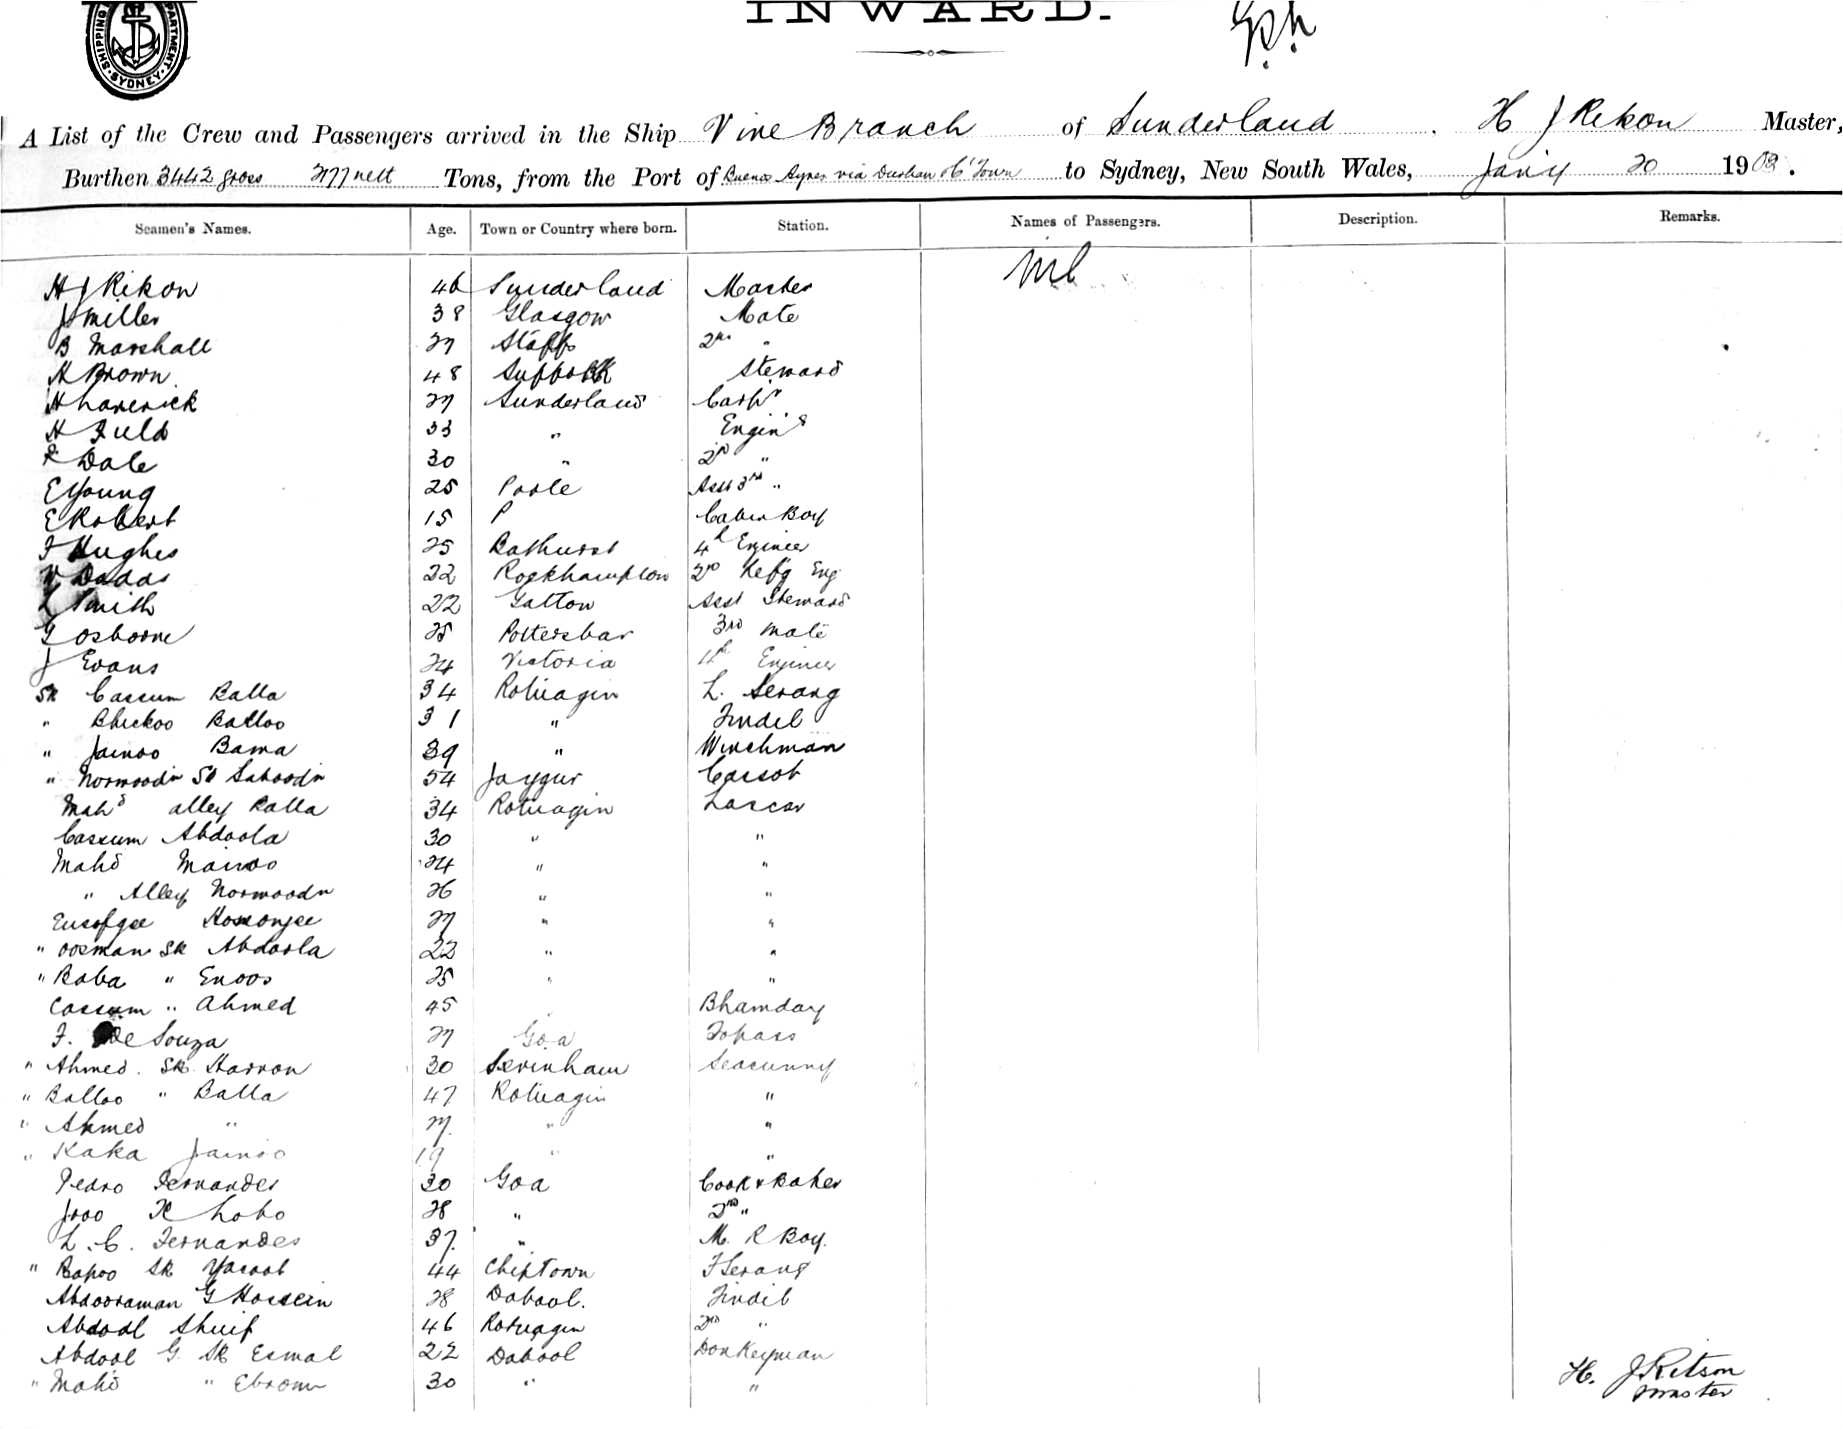 INWARD.
SHIPPING DEPARTMENT · SYDNEY
A List of the Crew and Passengers arrived in the Ship Vine Branch of Sunderland. H J Rikon Master,
Burthen 3442 gross nett Tons, from the Port of Buenos Ayres via Durban & C'Town to Sydney, New South Wales, Jan'y 20 1902.
Seamen's Names. Age. Town or Country where born. Station. Names of Passengers. Description. Remarks.
H J Rikon 46 Sunderland Master Nil
J Miller 38 Glasgow Mate
B Marshall 27 Staffs 2nd "
H Brown 48 Suffolk Steward
H Laverick 27 Sunderland Carpr
H Fuld 33 " Enginr
Dale 30 " 2nd "
E Young 25 Poole Asst 3rd "
E Robert 15 P Cabin Boy
F Hughes 25 Bathurst 4th Enineer
Dadds 22 Rockhampton 2nd Refg Eng
L Smith 22 Gatton Asst Steward
G Osborne 25 Pottersbar 3rd Mate
J Evans 24 Victoria Engineer
Sk Cassum Balla 34 Rotnagiri L. Serang
" Bhickoo Balloo 31 " Tindel
" Jainoo Bama 39 " Winchman
" Normoodn Sk Saboodn 54 Jaygur Cassob
Mahd Alley Balla 34 Rotnagiri Lascar
Cassum Abdoola 30 " "
Mahd Mainoo 24 " "
" Alley Normoodn 26 " "
Eusofgee Hosonjee 27 " "
" Oosman Sk Abdoola 22 " "
" Baba " Enoos 25 " "
Cassum " Ahmed 45 Bhamday
F. De Souza 27 Goa Topass
" Ahmed Sk Harron 30 Sevinham Seacunny
" Balloo " Balla 47 Rotnagiri "
" Ahmed " 27. " "
" Kaka Jainoo 19 " "
Pedro Fernandes 30 Goa Cook & Baker
Joao Lobo 28 " 2nd "
L. C. Fernandes 37. " M. R Boy.
" Bapoo Sk Yacoob 44 Chiptown F Serang
Abdooraman G Hossein 28 Dabool. Tindil
Abdool Shuif 46 Rotnagiri 2nd "
Abdool G. Sk Esmal 22 Dabool Donkeyman
" Mahd " Ebroom 30 " "
H. J Ritson
Master